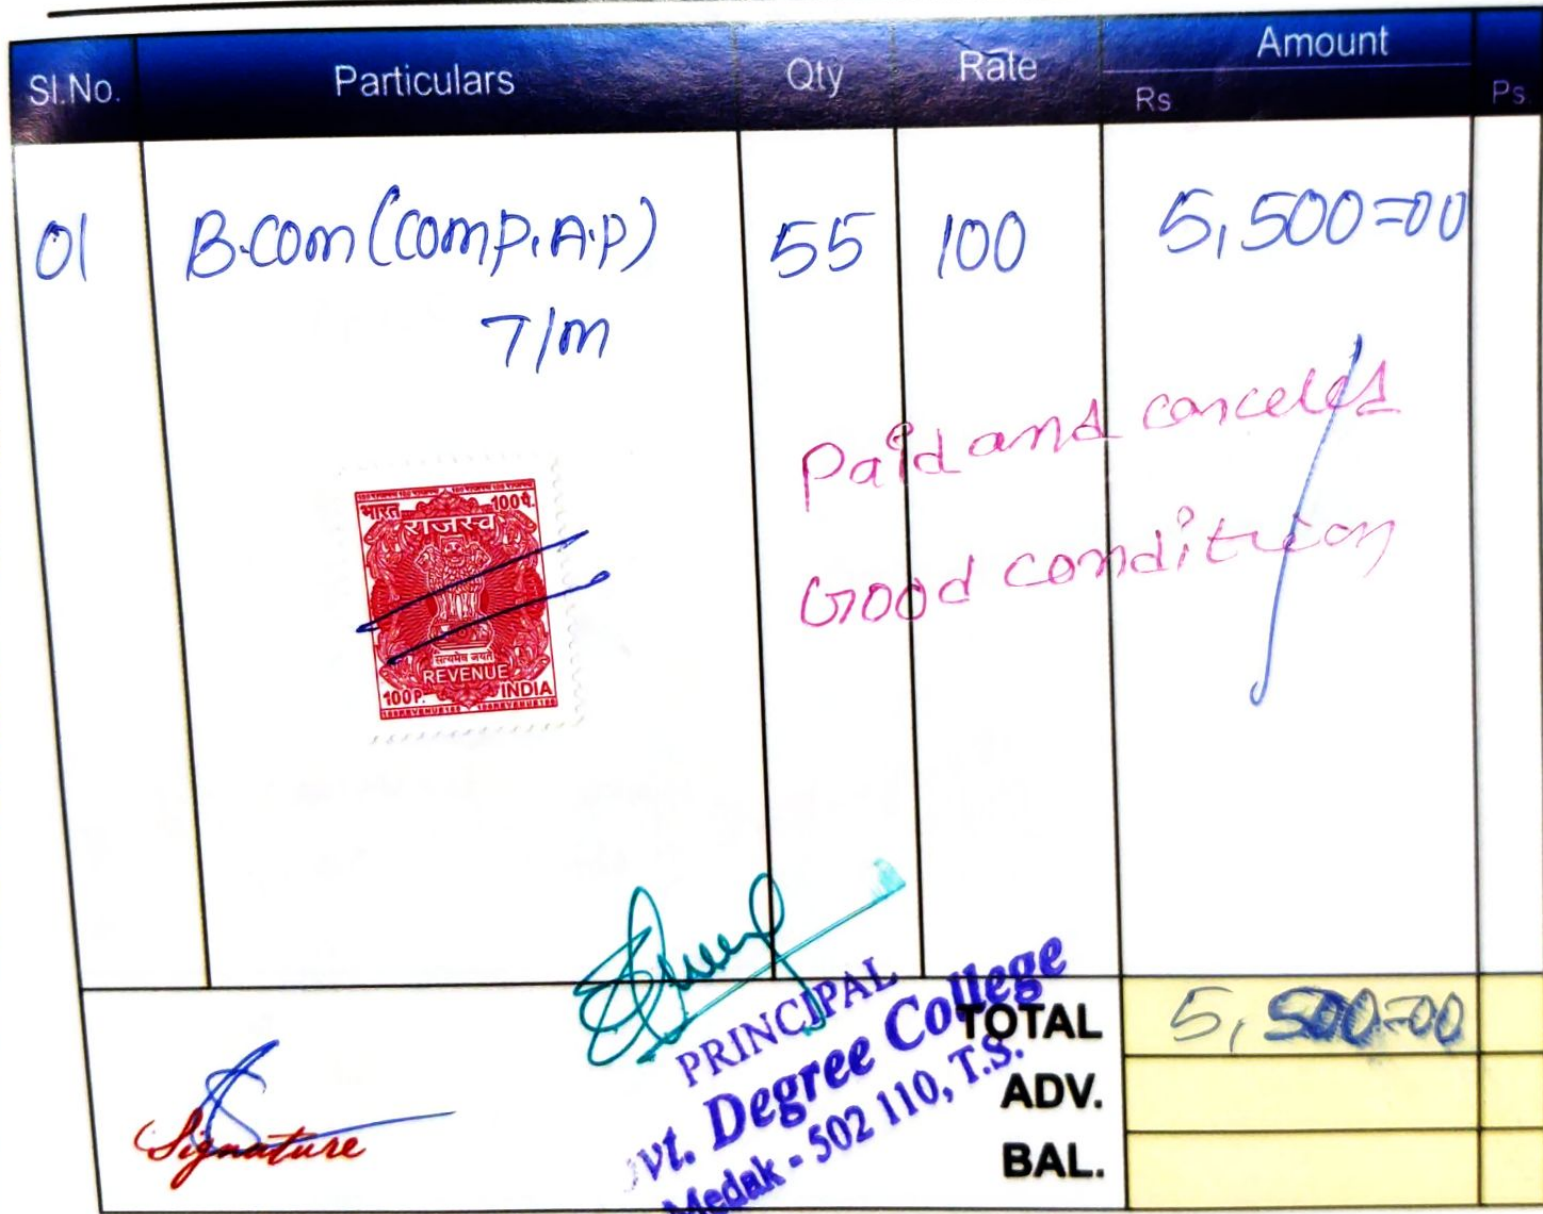 Sl.No. Particulars Qty Rate Amount
Rs Ps.
01 B.com (comp.A.P) 55 100 5,500=00
T/m
Paid and canceled
Good condition
भारत 100पै.
राजस्व
सत्यमेव जयते
REVENUE
100P. INDIA
PRINCIPAL
vt. Degree College
Medak - 502 110, T.S.
TOTAL 5,500=00
ADV.
BAL.
Signature